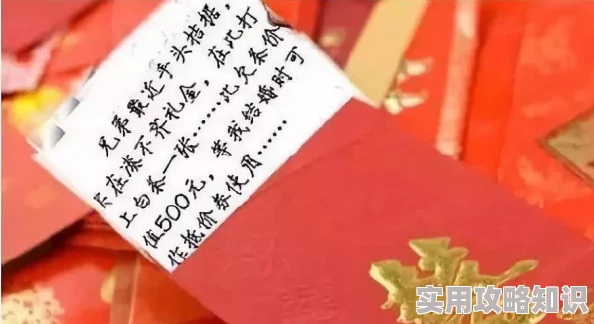 兄弟最近手头拮据,
实在凑不齐礼金,在此打
上白条一张……此欠条价
值500元,等我结婚时可
作抵价券使用……
实用攻略知识